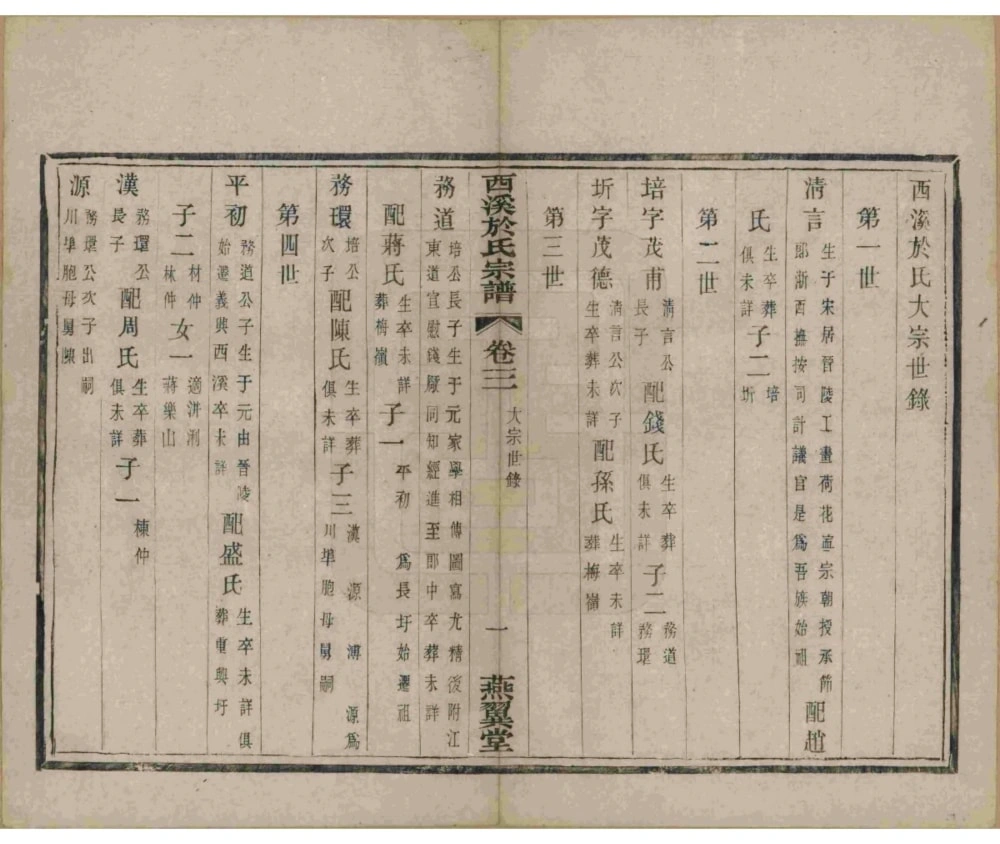 西溪於氏大宗世錄
第一世
清言 生于宋居晉陵工畫荷花寧宗朝授承節
郎浙西撫按司計議官是為吾族始祖 配趙
氏 生卒葬
俱未詳 子二 培
圻
第二世
培字茂甫 清言公
長子 配錢氏 生卒葬
俱未詳 子二 務道
務環
圻字茂德 清言公次子
生卒葬未詳 配孫氏 生卒未詳
葬梅嶺
第三世
務道 培公長子生于元家學相傳圖寫尤精後附江
東道宣慰錢厰同知經進至郎中卒葬未詳
配蔣氏 生卒未詳
葬梅嶺 子一 平初 為長圩始遷祖
西溪於氏宗譜 卷三 大宗世錄 一 燕翼堂
務環 培公
次子 配陳氏 生卒葬
俱未詳 子三 漢 源 溥 源為
川埠胞母舅嗣
第四世
平初 務道公子生于元由晉陵
始遷義興西溪卒未詳 配盛氏 生卒未詳俱
葬重興圩
子二 材仲
秣仲 女一 適洴浰
蔣樂山
漢 務環公
長子 配周氏 生卒葬
俱未詳 子一 棟仲
源 務環公次子出嗣
川埠胞母舅陳